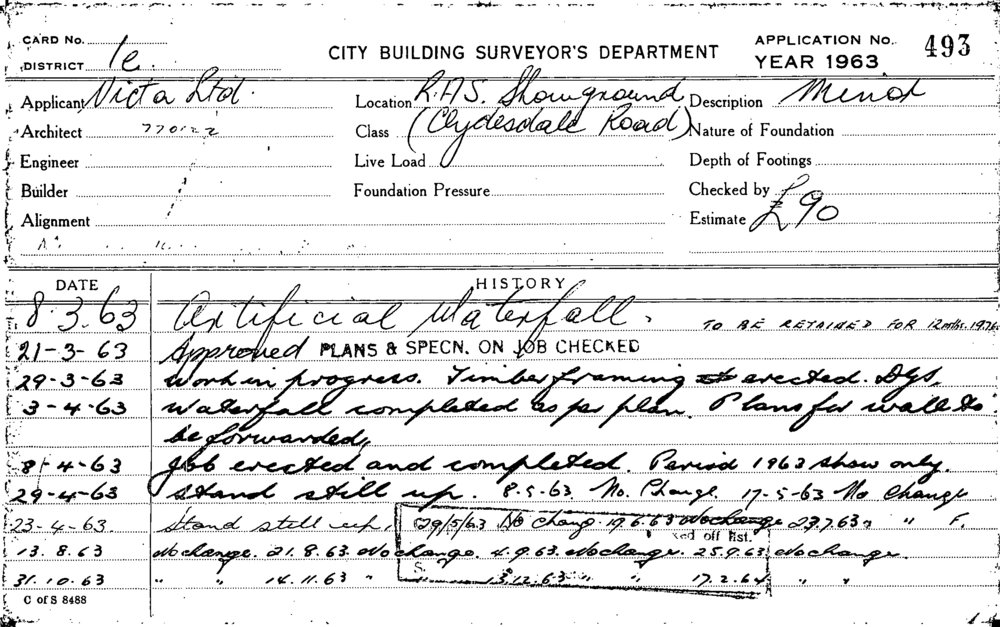 CARD No. CITY BUILDING SURVEYOR'S DEPARTMENT APPLICATION No. 493
DISTRICT 1e YEAR 1963
Applicant Victa Ltd. Location R.A.S. Showground Description Minor
Architect Class (Clydesdale Road) Nature of Foundation
Engineer Live Load Depth of Footings
Builder Foundation Pressure Checked by
Alignment Estimate £90
DATE HISTORY
8.3.63 Artificial Waterfall. TO BE RETAINED FOR 12 mths.
21-3-63 Approved PLANS & SPECN. ON JOB CHECKED
29-3-63 work in progress. Timber framing erected. DGS.
3-4-63 Waterfall completed as per plan. Plans for wall to
be forwarded
8-4-63 Job erected and completed. Period 1963 show only.
29-4-63 Stand still up. 8-5-63 No. Change. 17-5-63 No Change
23-4-63. Stand still up. 29/5/63 No Chang. 19.6.63 No change 23.7.63 " " F.
ked off list.
13.8.63 No change. 21.8.63. No change. 4.9.63. No change. 25.9.63 No change.
31.10.63 " " 14.11.63 " " 13.12.63 " " 17.2.64 " "
C of S 8488